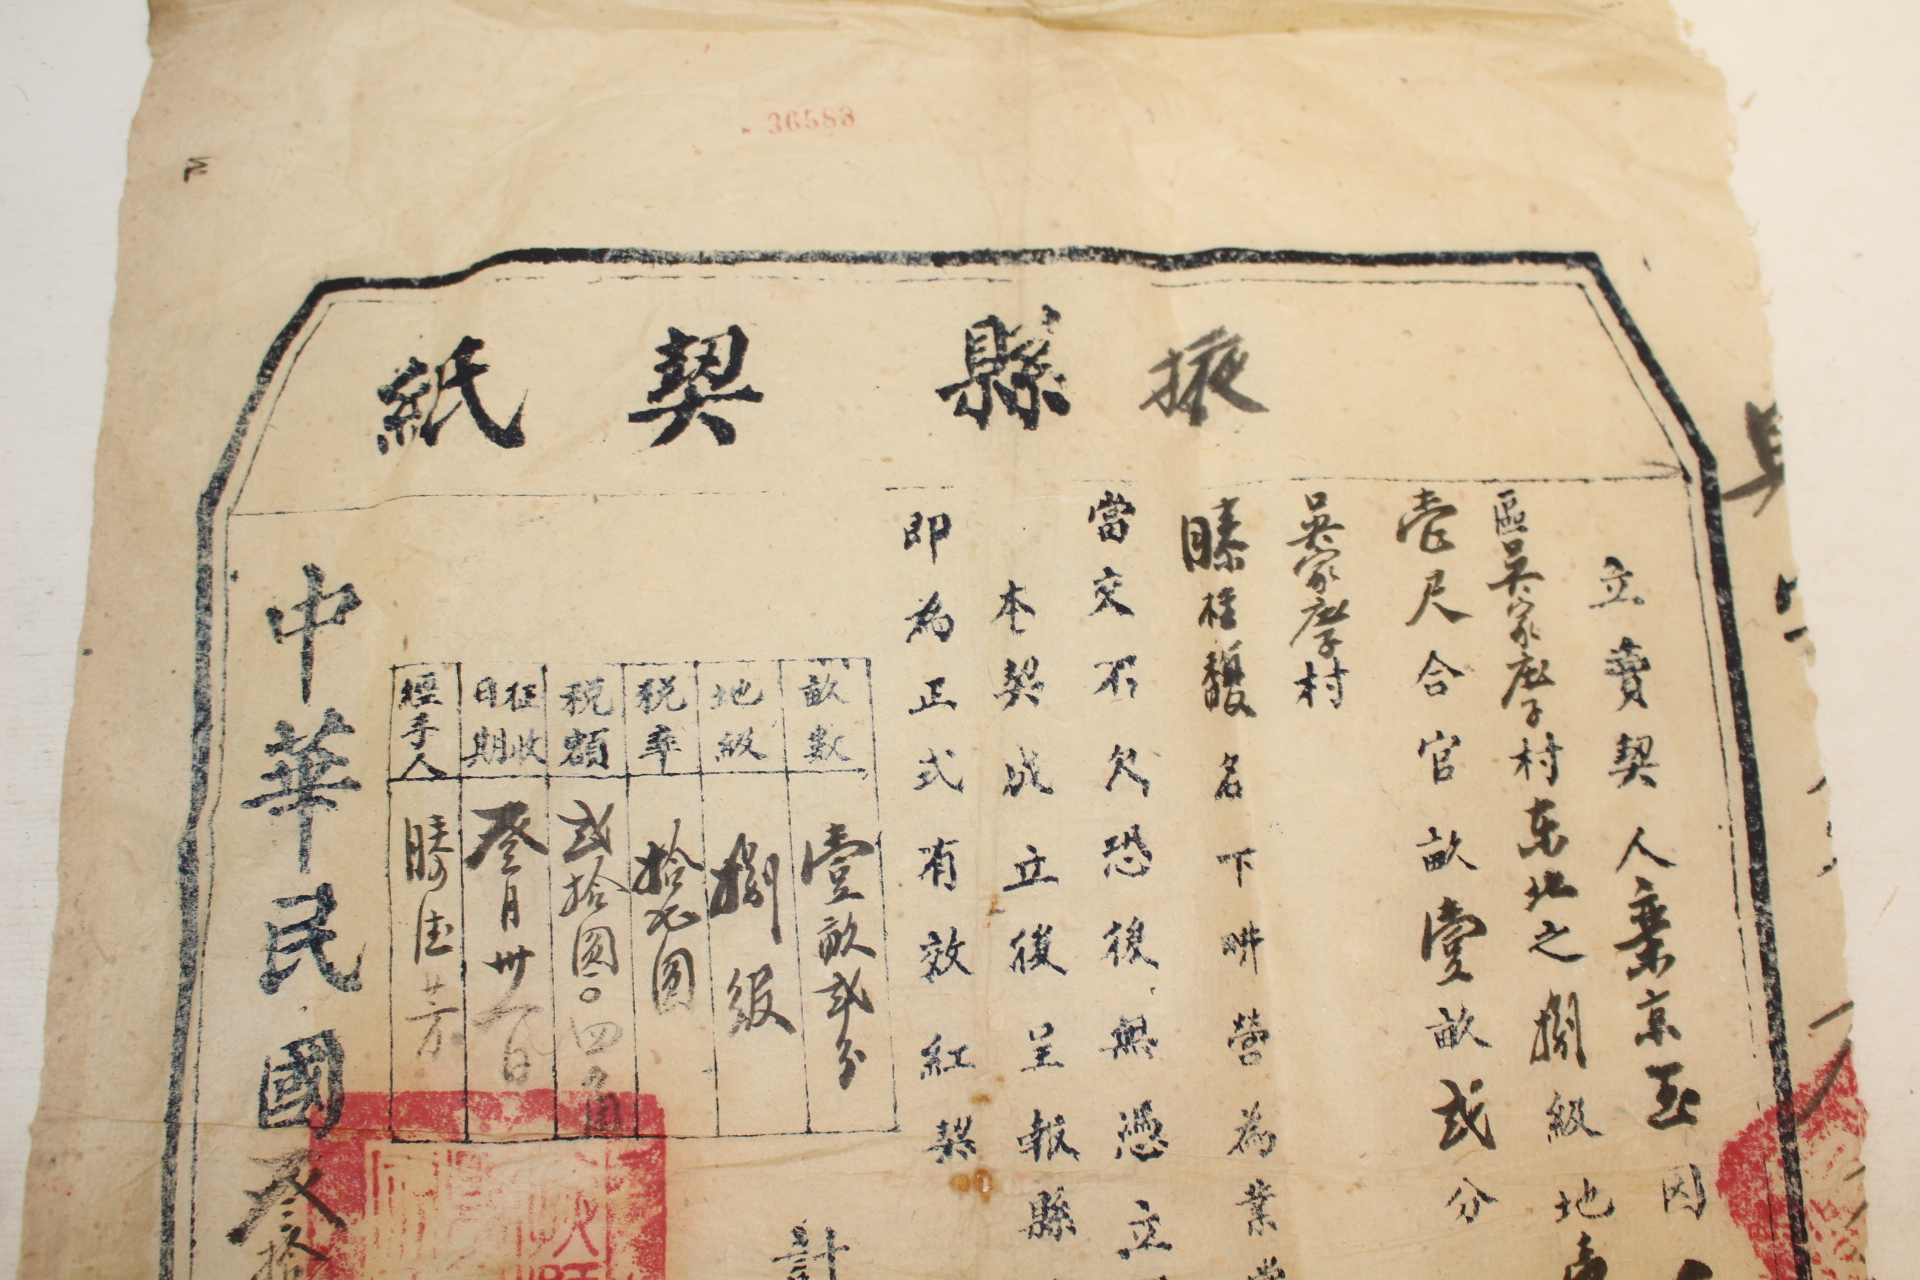 36583
掖縣契紙
立賣契人
京玉因
區吳家庄子村東北之捌級地
壹尺合官畝壹畝弍分
吳家庄子村
滕桂馥名下畊營為業
當交不欠恐後無憑立
本契成立後呈報縣
即為正式有效紅契
計
畝數 壹畝弍分
地級 捌級
稅率 拾圓
稅額 弍拾圓〇四角
征收日期 叄月卅日
經手人 滕德芳
中華民國叄拾